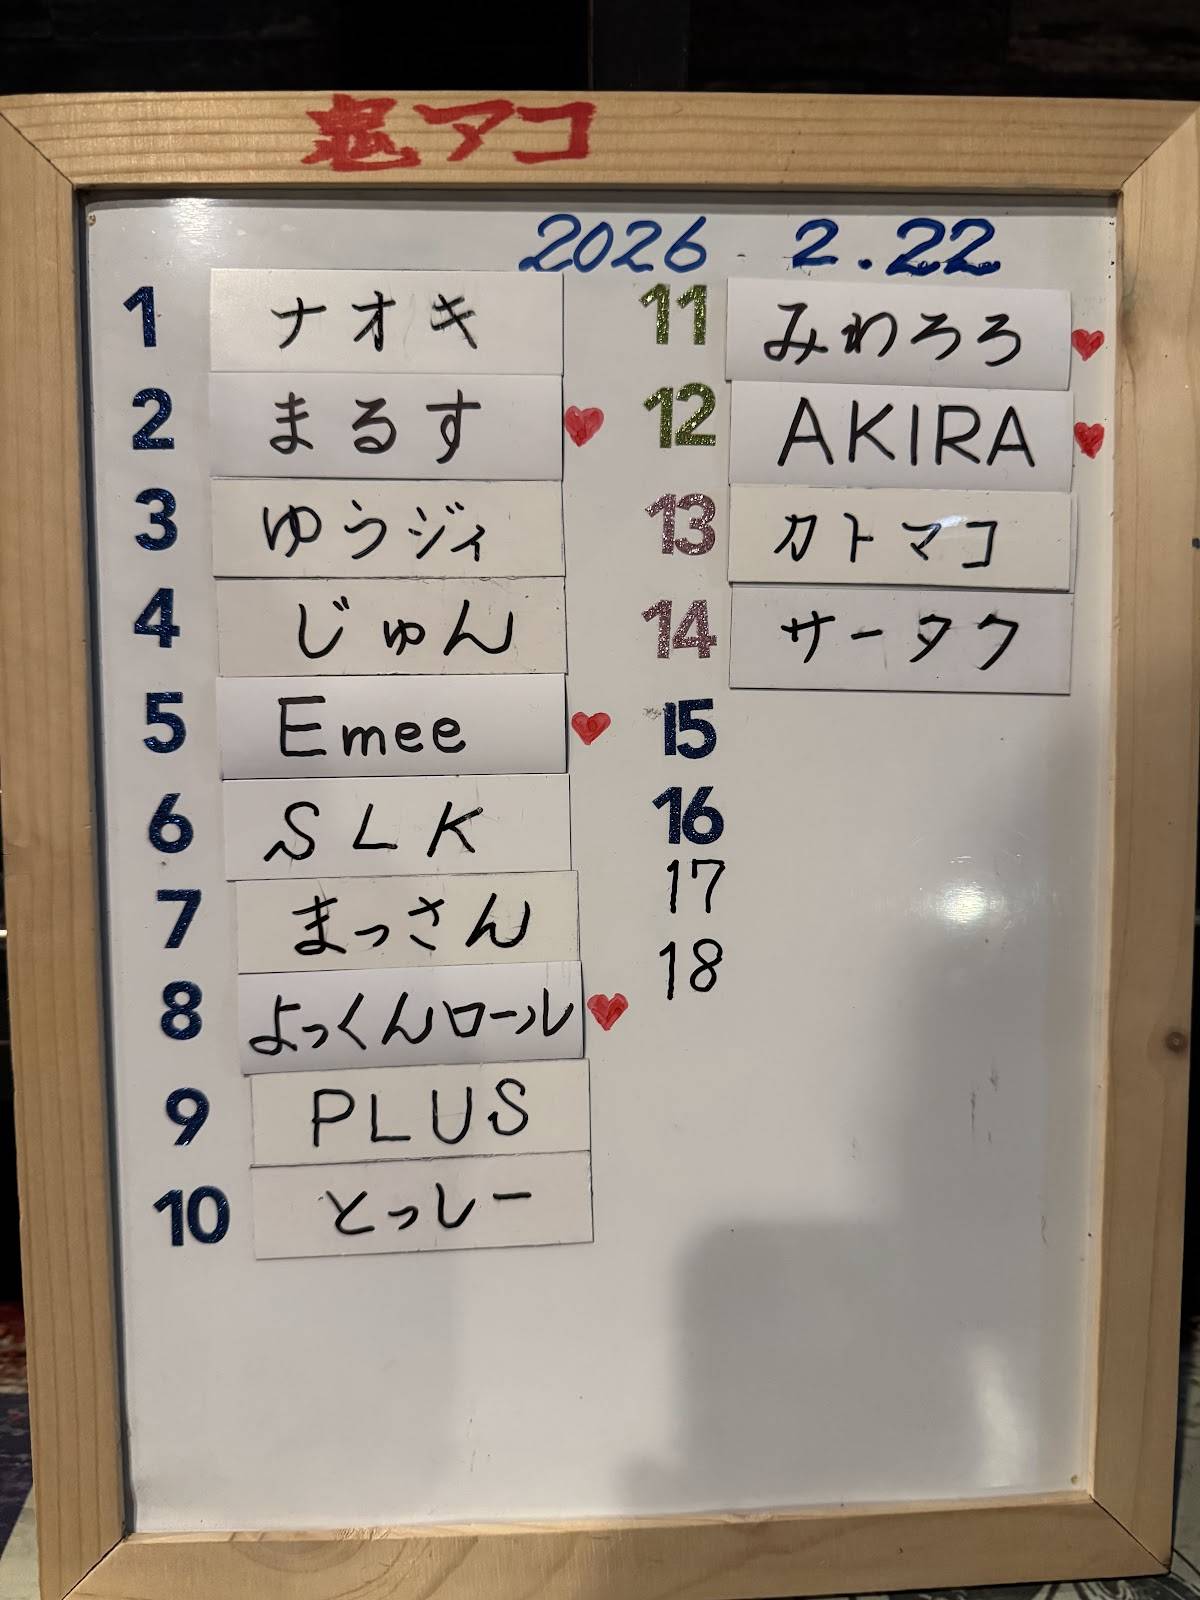 鬼アコ
2026 2.22
1 ナオキ
2 まるす ♥
3 ゆうジィ
4 じゅん
5 Emee ♥
6 SLK
7 まっさん
8 よっくんロール ♥
9 PLUS
10 とっしー
11 みわろろ ♥
12 AKIRA ♥
13 カトマコ
14 サータク
15
16
17
18